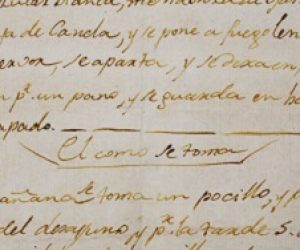 blanca, me
ja de Canela, y se pone a fuego len
ervor, se apaxta, y se dexa en
pr. un pano, y se guarda en bo
apado.
El como se toma
añana se toma un pocillo, y p
del desayuno, y pr. la tarde S.